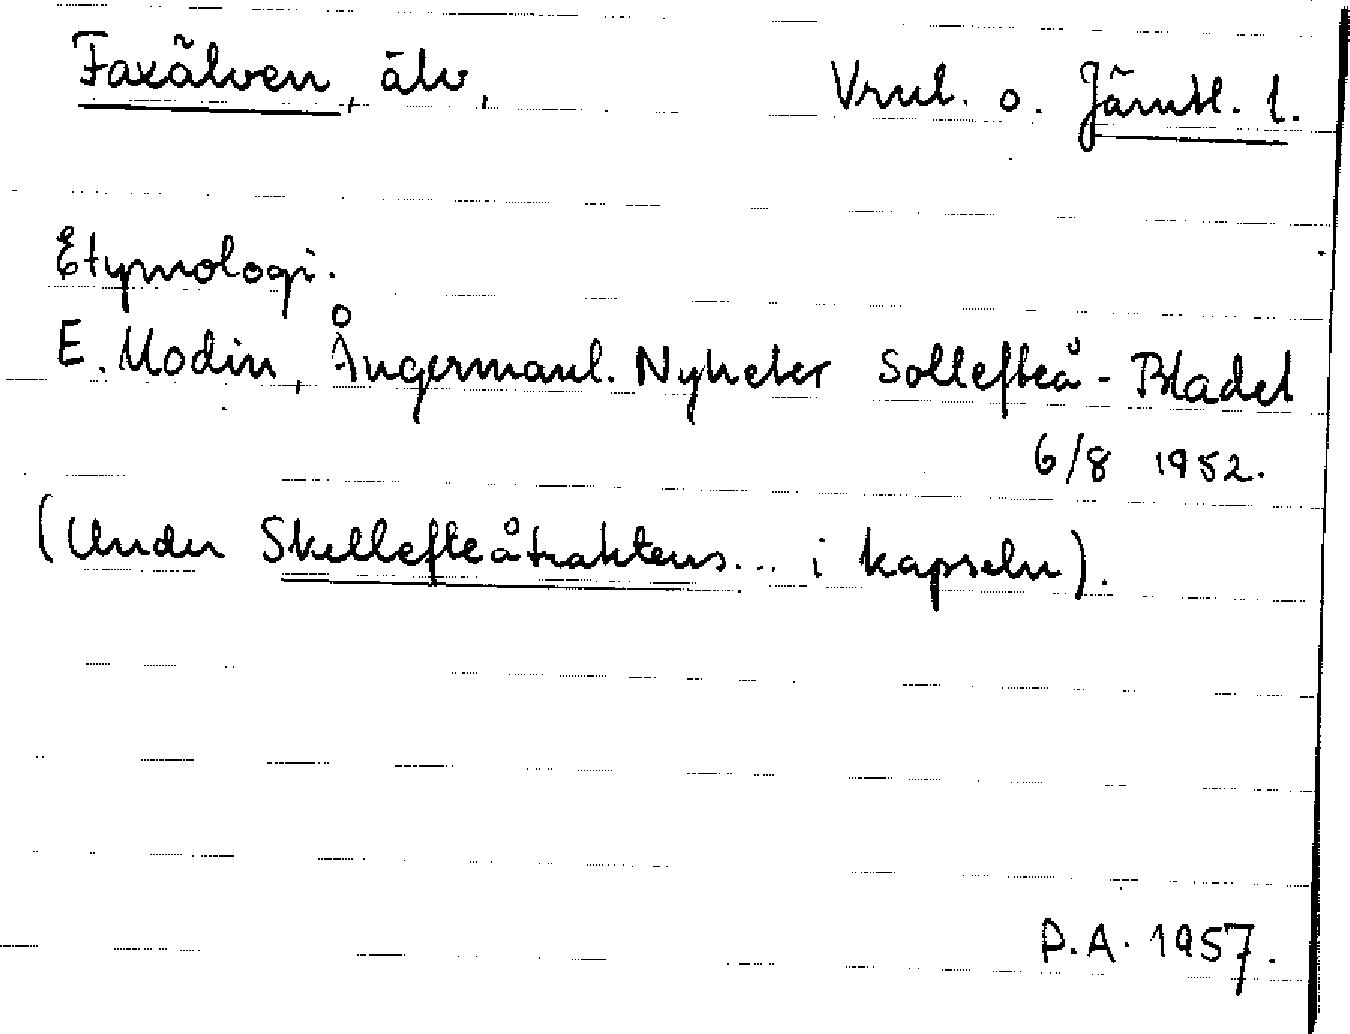 Faxälven, älv, Vrnl. o. Jämtl. l.
Etymologi.
E. Modin, Ångermanl. Nyheter Sollefteå-Bladet
6/8 1952.
(Under Skellefteåtraktens... i kapseln).
P.A. 1957.